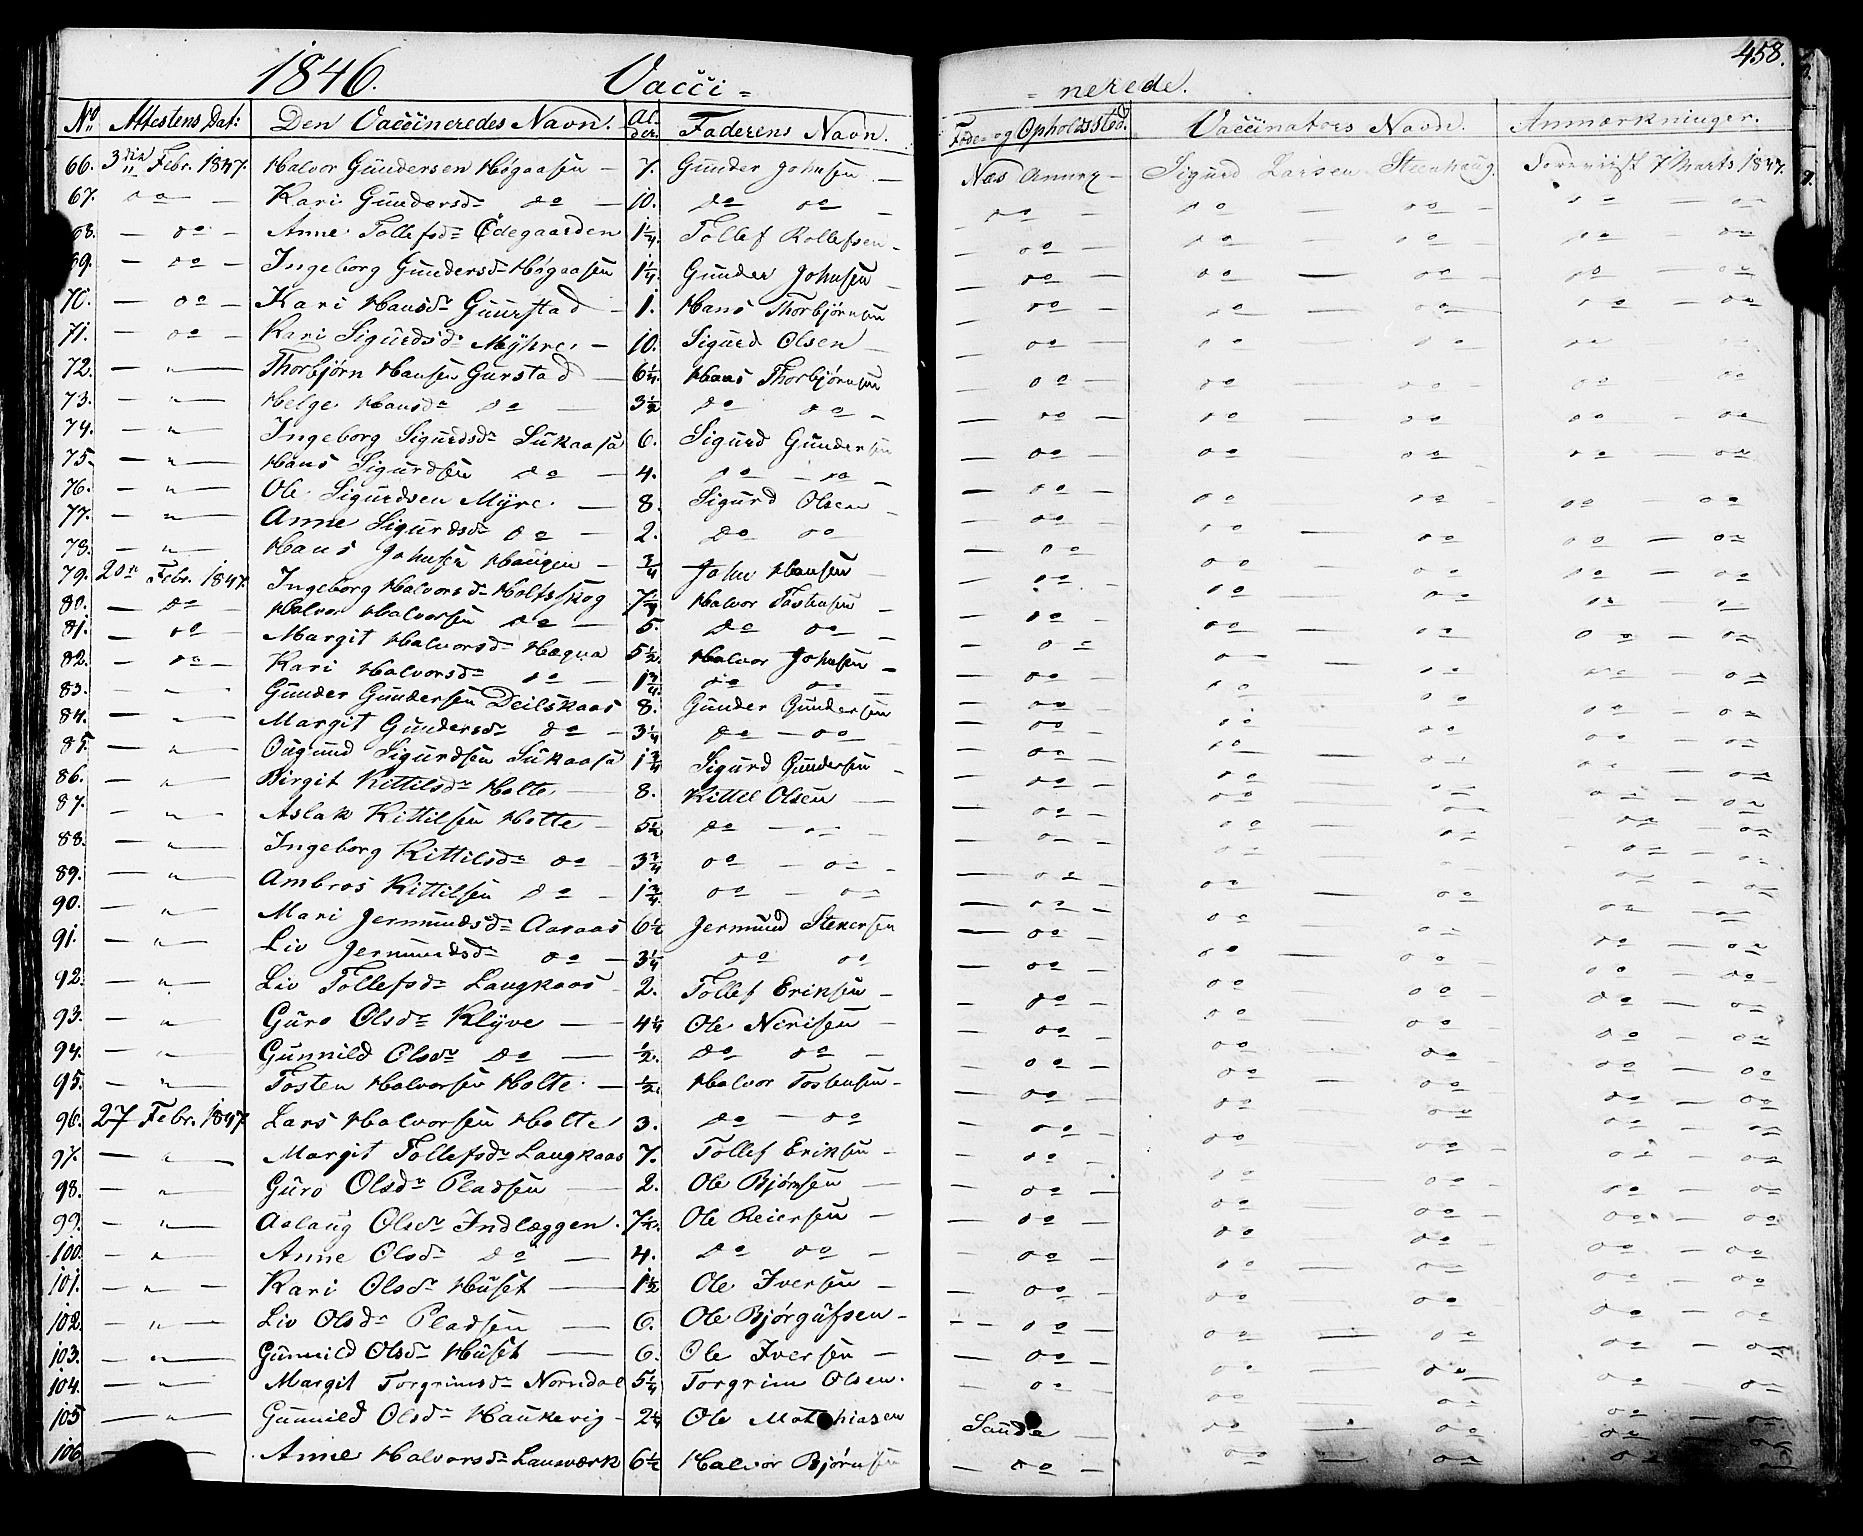 458.
1846. Vacci= =nerede.
No. Attestens Dat: Den Vaccineredes Navn. Al- der. Faderens Navn. Føde- og Opholdssted. Vaccinators Navn. Anmærkninger.
66. 3die Febr. 1847. Halvor Gundersen Høgaasen — 7. Gunder Johnsen — Næs Annex — Sigurd Larsen Steenhaug. Foreviist 7 Marts 1847.
67. do — Kari Gundersdr do — 10. do do — do — do — do — do — do
68. — do — Anne Tollefsdr Ødegaarden 1¼. Tollef Rollefsen — — do — do — do — do — do
69. — do — Ingeborg Gundersdr Høgaasen 1¼. Gunder Johnsen — — do — do — do — do — do
70. — do — Kari Hansdr Guurstad — 1. Hans Thorbjørnsen — do — do — do — do — do
71. — do — Kari Sigurdsdr Myhre — 10. Sigurd Olsen — — do — do — do — do — do
72. — " — Thorbjørn Hansen Gurstad — 6¼. Hans Thorbjørnsen — do — do — do — do — do
73. — " — Helge Hansdr do — 3½ do do — — do — do — do — do — do
74. — " — Ingeborg Sigurdsdr Lukaasa 6. Sigurd Gundersen — do — do — do — do — do
75. — " — Hans Sigurdsen do — 4. do — do — — do — do — do — do — do
76. — " — Ole Sigurdsen Myre. — 8. Sigurd Olsen — — do — do — do — do — do
77. — " — Anne Sigurdsdr do — 2. do do — do — do — do — do — do
78. — " — Hans Johnsen Haugen — ¾ John Hansen — do — do — do — do — do
79. 20n Febr. 1847. Ingeborg Halvorsdr Holtsskog 7¼ Halvor Tostensen — — do — do — do — do — do
80. — do — Halvor Halvorsen do — 5. do do — — do — do — do — do — do
81. — do — Margit Halvorsdr Hægna 5½. Halvor Johnsen — — do — do — do — do — do
82. — do — Kari Halvorsdr do — 1¾. do do — — do — do — do — do — do
83. — " — Gunder Gundersen Deilskaas 8. Gunder Gundersen — do — do — do — do — do
84. — " — Margit Gundersdr do — 3¼ do — do — — do — do — do — do — do
85. — " — Ougund Sigurdsen Lukaasa 1¾ Sigurd Gundersen — — do — do — do — do — do
86. — " — Birgit Kittilsdr Holte — 8. Kittel Olsen — — do — do — do — do — do
87. — " — Aslak Kittilsen Holte — 5½ do — do — — do — do — do — do — do
88. — " — Ingeborg Kittilsdr do — 3¾ do — do — — do — do — do — do — do
89. — " — Ambros Kittilsen do — 1¾. do — do — do — do — do — do — do
90. — " — Mari Jermundsdr Aaraas 6½ Jermund Stenersen — do — do — do — do — do
91. — " — Liv Jermundsdr do — 3¼ do do — do — do — do — do — do
92. — " — Liv Tollefsdr Langkaas — 2. Tollef Eriksen — — do — do — do — do — do
93. — " — Guro Olsdr Klyve — 4¼ Ole Nirisen — — do — do — do — do — do
94. — " — Gunnild Olsdr do — ½. do do — — do — do — do — do — do
95. — " — Tosten Halvorsen Holte. — ½. Halvor Tostensen — — do — do — do — do — do
96. 27 Febr. 1847 Lars Halvorsen Holte 3. do — do — do — do — do — do — do
97. — " — Margit Tollefsdr Langkaas 7. Tollef Eriksen — — do — do — do — do — do
98. — " — Guro Olsdr Pladsen — 2. Ole Bjørnsen — — do — do — do — do — do
99. — " — Aslaug Olsdr Indlæggen. 7½. Ole Reiersen — — do — do — do — do — do
100. — " — Anne Olsdr do — 4. do do — — do — do — do — do — do
101. — " — Kari Olsdr Huset — 1½ Ole Iversen — — do — do — do — do — do
102. — " — Liv Olsdr Pladsen — 6. Ole Bjørgufsen — — do — do — do — do — do
103. — " — Gunnild Olsdr Huset — 6. Ole Iversen — — do — do — do — do — do
104. — " — Margit Torgrimsdr Norndal 5¼ Torgrim Olsen. — do — do — do — do — do
105 — " — Gunnild Olsdr Haukevig — 2¼ Ole Mathiasen Saude — do — do — do — do
106. — Anne Halvorsdr Lansværk 6½ Halvor Bjørnsen — do — do — do — do — do